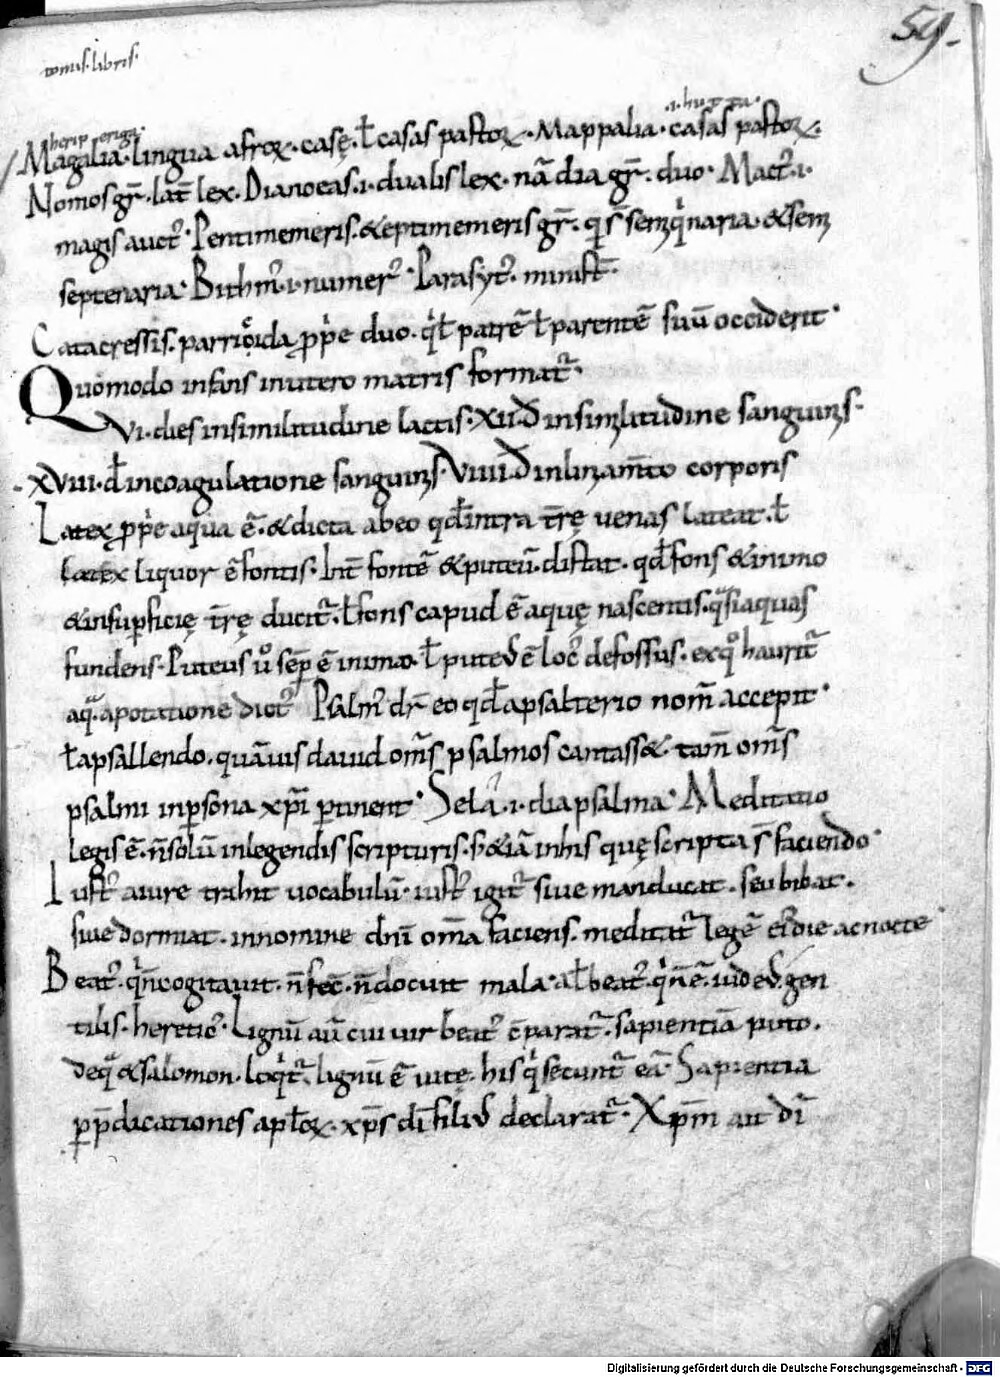 59.
tomis·libris·
herip eriga·
·i·hutta·
Magalia·lingua afroꝝ·casę·ł casas pastoꝝ·Mappalia·casas pastoꝝ·
Nomos gr̄·lat̄ lex·Dianoeas·i·dualis lex·nā dia gr̄·duo·Mact᷒·i·
magis auct᷒·Pentimemeris·&eptimemeris gr̄·qͥ s̄ semꝗnaria·&sem
septenaria·Bithm᷒·i·numer᷒·Parasyt᷒·minist̄·
Catacressis·parricida ꝓp̄e duo·qͥ ł patrē ł parentē suū occiderit·
Quomodo infans inutero matris format᷑·
VI·dies insimilitudine lactis·XII·đ insimilitudine sanguinis·
XVIII·đ incoagulatione sanguinis VIIII·đ inliniam̄to corporis
Latex ꝓp̄e aqua ē·&dicta abeo qđ intra t̄rę venas lateat·ł
latex liquor ē fontis·Int̄ fontē &puteū·distat·qđ fons &inimo
&insuꝑficię t̄rę ducit᷑·ł fons capud ē aquę nascentis·qͣsi aquas
fundens·Puteus uͦ sēp ē inimo·ł puteus ē loc᷒ defossus·exqͦ haurit᷑
aqͣ·apotatione dict᷒ Psalm᷒ dr̄ eo qđ apsalterio nom̄ accepit·
ł apsallendo·quāuis dauid om̄s psalmos cantass&·tam̄ om̄s
psalmi inꝑsona xp̄i ꝑtinent·Sela·i·diapsalma·Meditatio
legis ē·n̄ solū inlegendis scripturis·s;&iā inhis quę scripta s̄ faciendo·
Iust᷒ aiure trahit vocabulū·iust᷒ igit᷑ siue manducat·seu bibat·
siue dormiat·innomine dn̄i om̄a faciens·meditat᷑ legē ei᷒ die ac nocte·
Beat᷒·qͥ n̄ cogitauit·n̄ fec̄·n̄ docuit mala·ał beat᷒·qͥ n̄ ē·iudeus·gen
tilis·heretic᷒·Lignū aū cui uir beat᷒ c̄parat᷑·sapientiā puto·
deqͣ &salomon·loqͥt᷑·lignū ē uitę·his qͥ secunt᷑ eā·Sapientia
ꝑp̄dicationes aplōꝝ·xp̄s dī filius declarat᷑·Xp̄m̄ aut dī
Digitalisierung gefördert durch die Deutsche Forschungsgemeinschaft - DFG